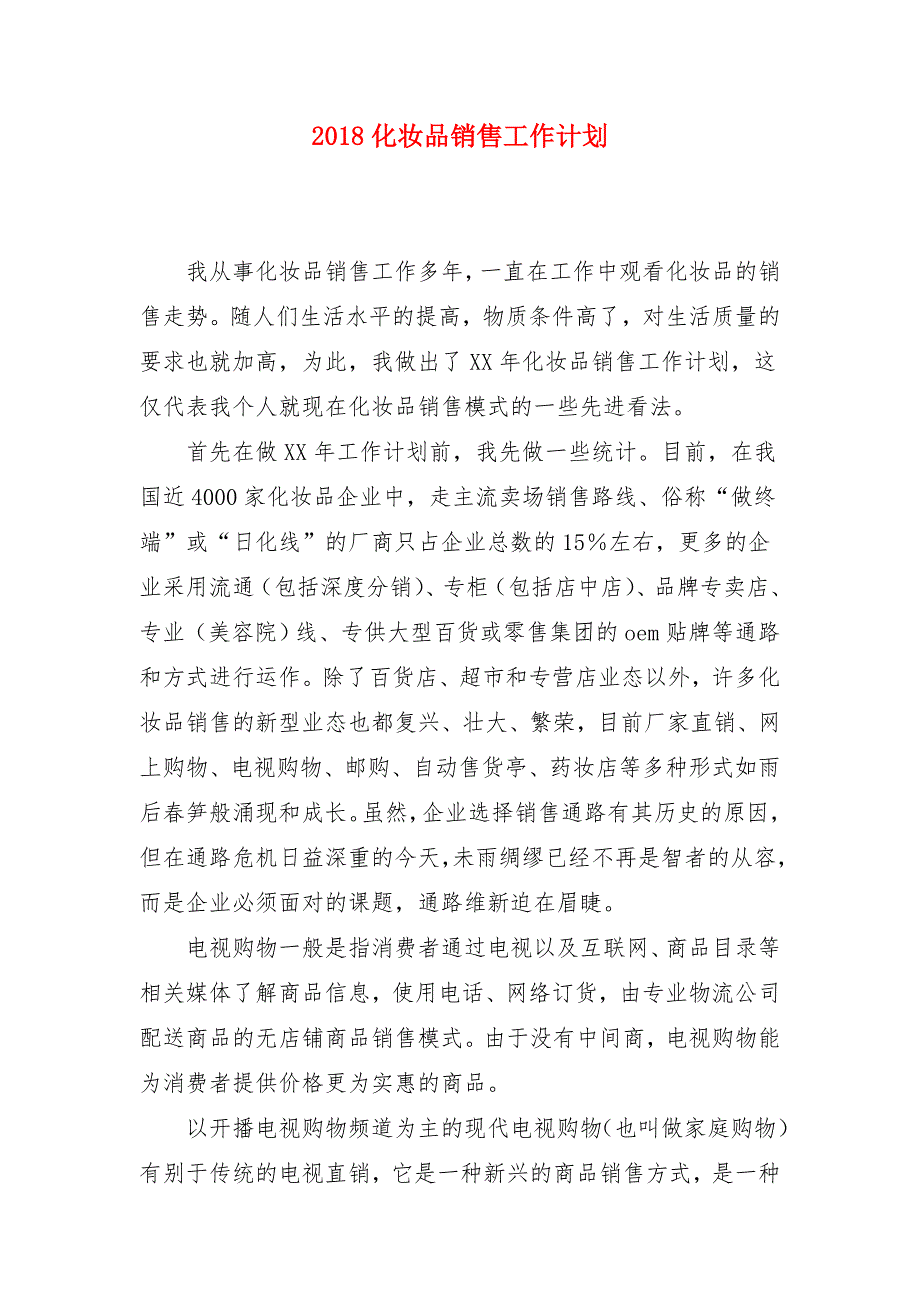 2018化妆品销售工作计划
我从事化妆品销售工作多年，一直在工作中观看化妆品的销
售走势。随人们生活水平的提高，物质条件高了，对生活质量的
要求也就加高，为此，我做出了 XX 年化妆品销售工作计划，这
仅代表我个人就现在化妆品销售模式的一些先进看法。
首先在做 XX 年工作计划前，我先做一些统计。目前，在我
国近 4000 家化妆品企业中，走主流卖场销售路线、俗称“做终
端”或“日化线”的厂商只占企业总数的 15％左右，更多的企
业采用流通（包括深度分销）、专柜（包括店中店）、品牌专卖店、
专业（美容院）线、专供大型百货或零售集团的 oem 贴牌等通路
和方式进行运作。除了百货店、超市和专营店业态以外，许多化
妆品销售的新型业态也都复兴、壮大、繁荣，目前厂家直销、网
上购物、电视购物、邮购、自动售货亭、药妆店等多种形式如雨
后春笋般涌现和成长。虽然，企业选择销售通路有其历史的原因，
但在通路危机日益深重的今天，未雨绸缪已经不再是智者的从容，
而是企业必须面对的课题，通路维新迫在眉睫。
电视购物一般是指消费者通过电视以及互联网、商品目录等
相关媒体了解商品信息，使用电话、网络订货，由专业物流公司
配送商品的无店铺商品销售模式。由于没有中间商，电视购物能
为消费者提供价格更为实惠的商品。
以开播电视购物频道为主的现代电视购物（也叫做家庭购物）
有别于传统的电视直销，它是一种新兴的商品销售方式，是一种